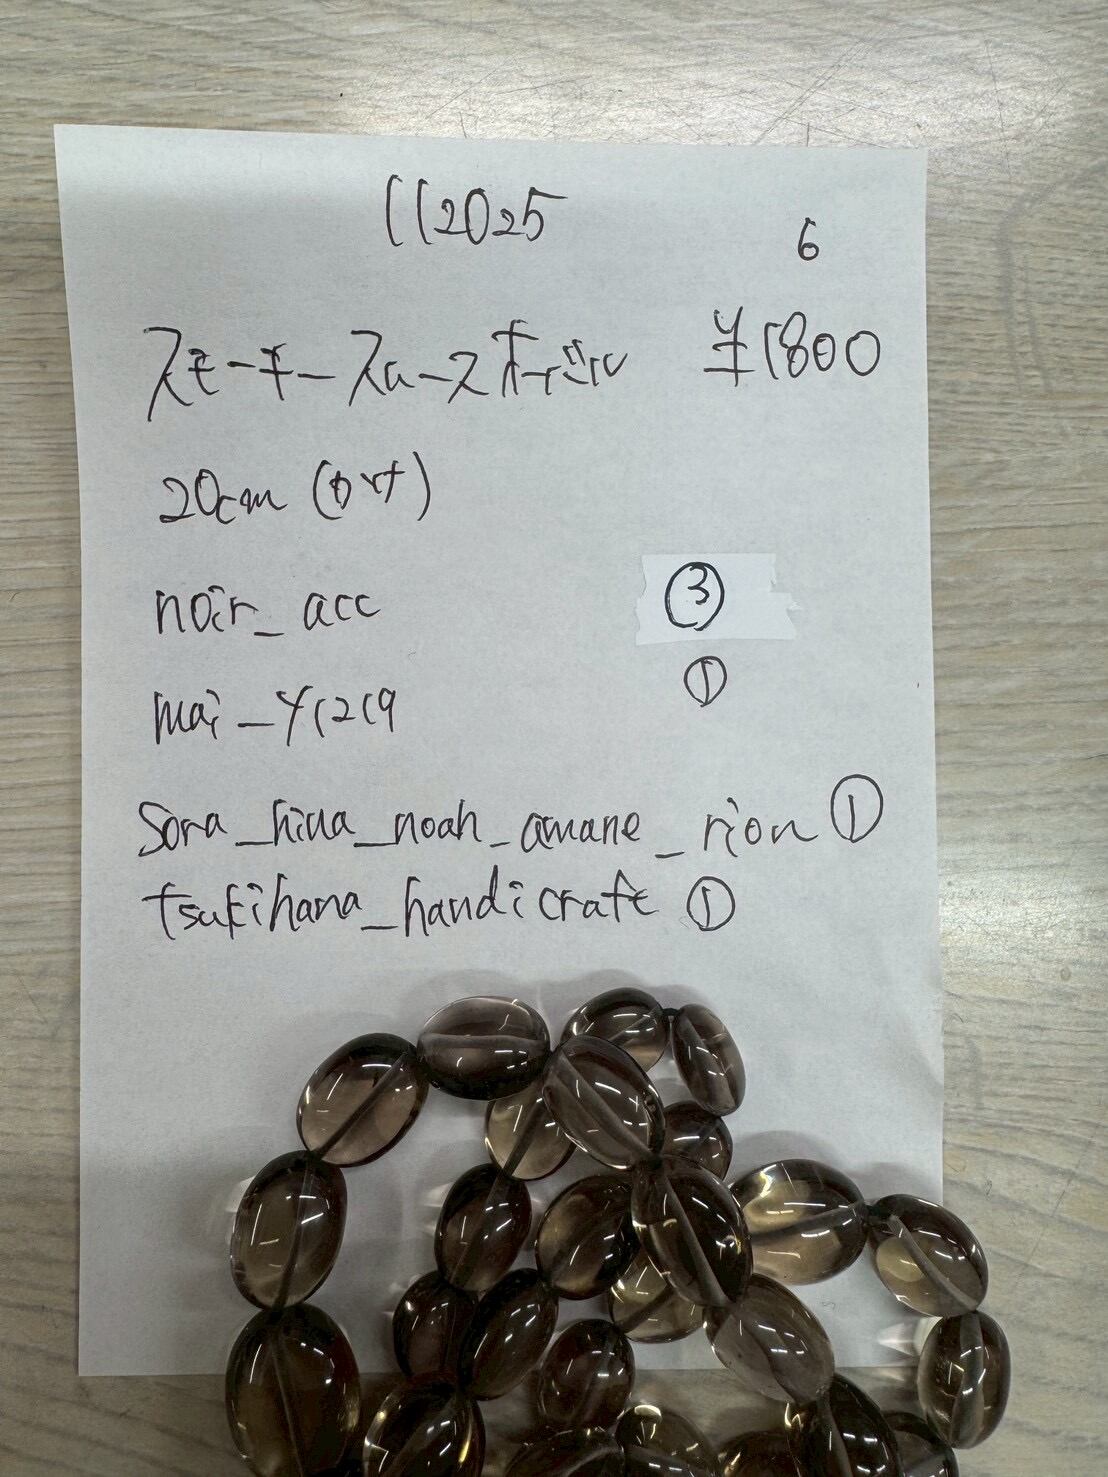 112025
6
スモーキースムースオーバル ¥1800
20cm (わけ)
noir_acc ③
mai_y1219 ①
sora_hina_noah_amane_rion ①
tsukihana_handicraft ①